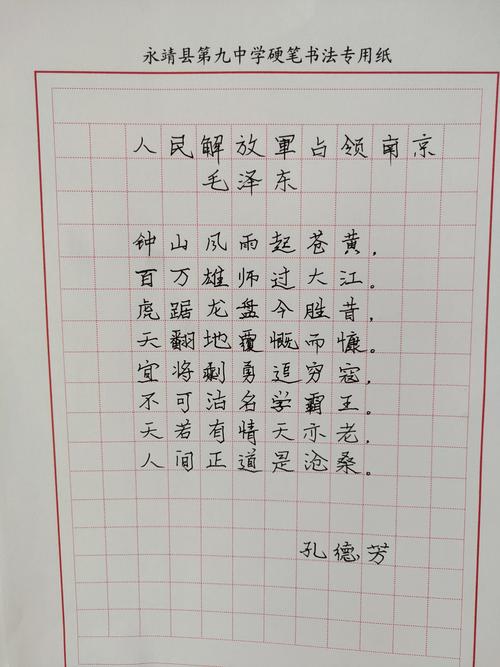 永靖县第九中学硬笔书法专用纸
人民解放軍占领南京
毛泽东
钟山风雨起苍黄，
百万雄师过大江。
虎踞龙盘今胜昔，
天翻地覆慨而慷。
宜将剩勇追穷寇，
不可沽名学霸王。
天若有情天亦老，
人间正道是沧桑。
孔德芳